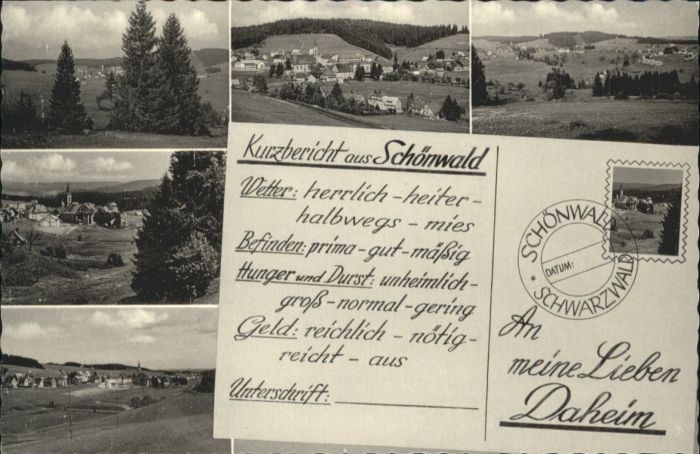 Kurzbericht aus Schönwald
Wetter: herrlich - heiter -
halbwegs - mies
Befinden: prima - gut - mäßig
Hunger und Durst: unheimlich -
groß - normal - gering
Geld: reichlich - nötig -
reicht - aus
Unterschrift:
SCHÖNWALD
DATUM:
* SCHWARZWALD
An
meine Lieben
Daheim